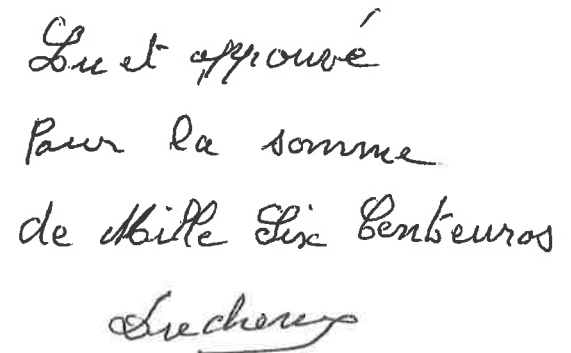 Lu et appouvé
Pour la somme
de Mille Six Cent euros